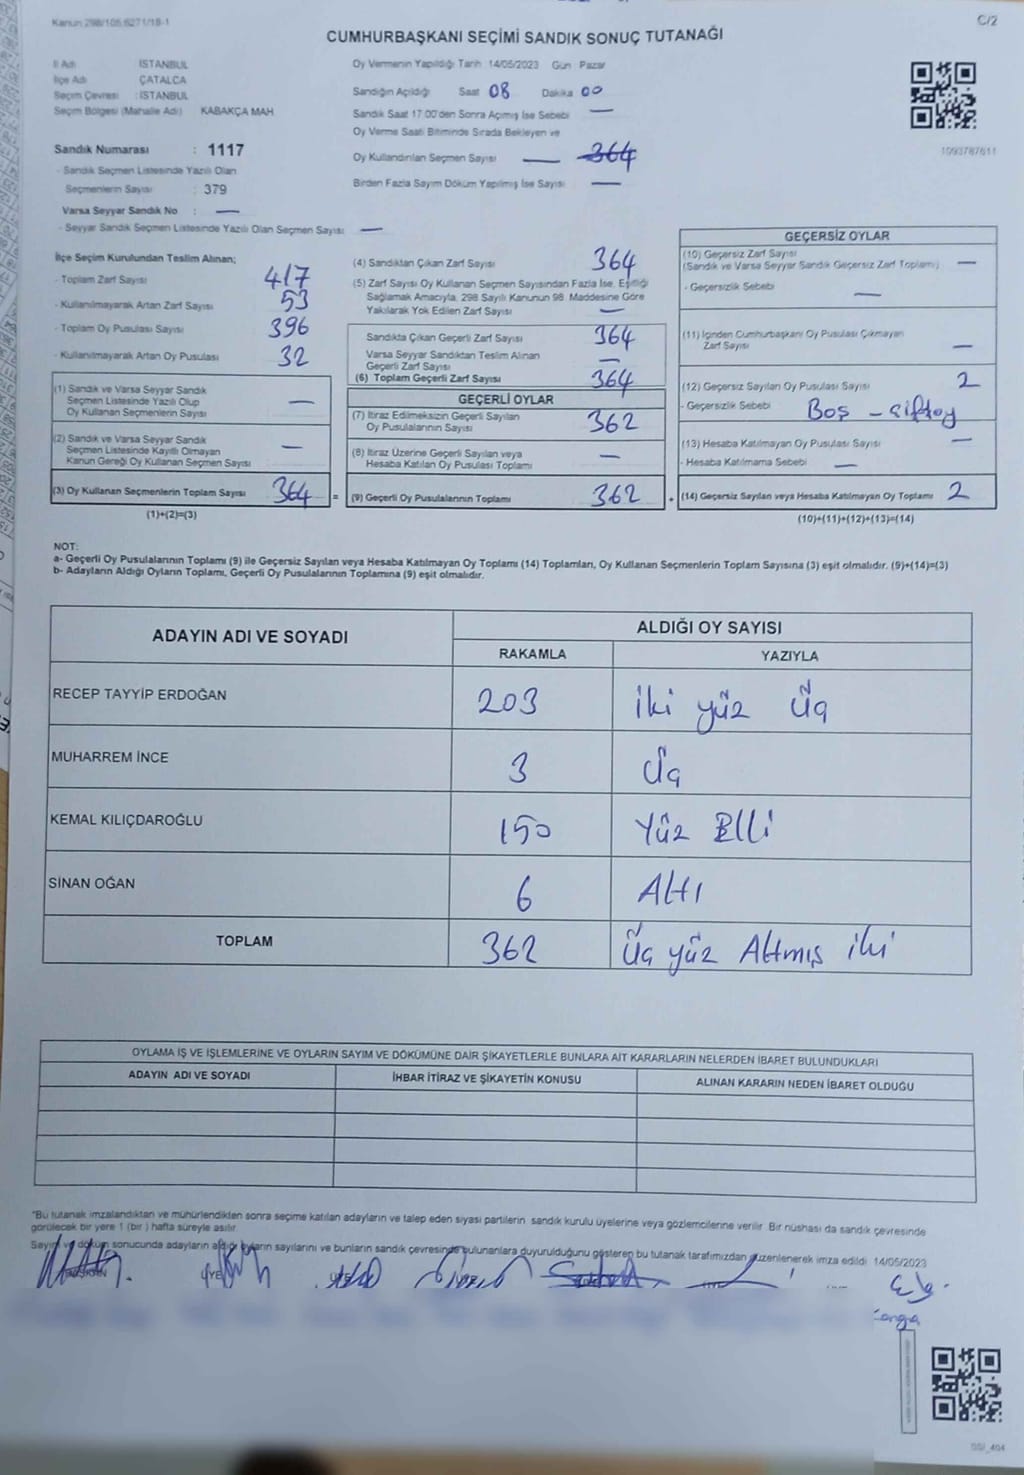 Kanun 298/105,6271/18-1
C/2
CUMHURBAŞKANI SEÇİMİ SANDIK SONUÇ TUTANAĞI
İl Adı İSTANBUL
İlçe Adı ÇATALCA
Seçim Çevresi : İSTANBUL
Seçim Bölgesi (Mahalle Adı) KABAKÇA MAH
Sandık Numarası : 1117
- Sandık Seçmen Listesinde Yazılı Olan
Seçmenlerin Sayısı : 379
Varsa Seyyar Sandık No : —
- Seyyar Sandık Seçmen Listesinde Yazılı Olan Seçmen Sayısı —
Oy Vermenin Yapıldığı Tarih :14/05/2023 Gün : Pazar
Sandığın Açıldığı Saat 08 Dakika 00
Sandık Saat 17.00'den Sonra Açılmış İse Sebebi —
Oy Verme Saati Bitiminde Sırada Bekleyen ve
Oy Kullandırılan Seçmen Sayısı — 364
Birden Fazla Sayım Döküm Yapılmış İse Sayısı —
1093787611
İlçe Seçim Kurulundan Teslim Alınan;
- Toplam Zarf Sayısı 417
- Kullanılmayarak Artan Zarf Sayısı 53
- Toplam Oy Pusulası Sayısı 396
- Kullanılmayarak Artan Oy Pusulası 32
(1) Sandık ve Varsa Seyyar Sandık
Seçmen Listesinde Yazılı Olup
Oy Kullanan Seçmenlerin Sayısı —
(2) Sandık ve Varsa Seyyar Sandık
Seçmen Listesinde Kayıtlı Olmayan
Kanun Gereği Oy Kullanan Seçmen Sayısı —
(3) Oy Kullanan Seçmenlerin Toplam Sayısı 364 =
(1)+(2)=(3)
(4) Sandıktan Çıkan Zarf Sayısı 364
(5) Zarf Sayısı Oy Kullanan Seçmen Sayısından Fazla İse, Eşitliği
Sağlamak Amacıyla, 298 Sayılı Kanunun 98. Maddesine Göre
Yakılarak Yok Edilen Zarf Sayısı —
Sandıkta Çıkan Geçerli Zarf Sayısı 364
Varsa Seyyar Sandıktan Teslim Alınan
Geçerli Zarf Sayısı —
(6) Toplam Geçerli Zarf Sayısı 364
GEÇERLİ OYLAR
(7) İtiraz Edilmeksizin Geçerli Sayılan
Oy Pusulalarının Sayısı 362
(8) İtiraz Üzerine Geçerli Sayılan veya
Hesaba Katılan Oy Pusulası Toplamı —
(9) Geçerli Oy Pusulalarının Toplamı 362
GEÇERSİZ OYLAR
(10) Geçersiz Zarf Sayısı
(Sandık ve Varsa Seyyar Sandık Geçersiz Zarf Toplamı) —
- Geçersizlik Sebebi —
(11) İçinden Cumhurbaşkanı Oy Pusulası Çıkmayan
Zarf Sayısı —
(12) Geçersiz Sayılan Oy Pusulası Sayısı 2
- Geçersizlik Sebebi Boş - çiftoy
(13) Hesaba Katılmayan Oy Pusulası Sayısı —
- Hesaba Katılmama Sebebi —
(14) Geçersiz Sayılan veya Hesaba Katılmayan Oy Toplamı 2
(10)+(11)+(12)+(13)=(14)
NOT:
a- Geçerli Oy Pusulalarının Toplamı (9) ile Geçersiz Sayılan veya Hesaba Katılmayan Oy Toplamı (14) Toplamları, Oy Kullanan Seçmenlerin Toplam Sayısına (3) eşit olmalıdır. (9)+(14)=(3)
b- Adayların Aldığı Oyların Toplamı, Geçerli Oy Pusulalarının Toplamına (9) eşit olmalıdır.
ADAYIN ADI VE SOYADI
ALDIĞI OY SAYISI
RAKAMLA YAZIYLA
RECEP TAYYİP ERDOĞAN 203 iki yüz Üç
MUHARREM İNCE 3 Üç
KEMAL KILIÇDAROĞLU 150 Yüz Elli
SİNAN OĞAN 6 Altı
TOPLAM 362 Üç yüz Altmış iki
OYLAMA İŞ VE İŞLEMLERİNE VE OYLARIN SAYIM VE DÖKÜMÜNE DAİR ŞİKAYETLERLE BUNLARA AİT KARARLARIN NELERDEN İBARET BULUNDUKLARI
ADAYIN ADI VE SOYADI İHBAR İTİRAZ VE ŞİKAYETİN KONUSU ALINAN KARARIN NEDEN İBARET OLDUĞU
"Bu tutanak imzalandıktan ve mühürlendikten sonra seçime katılan adayların ve talep eden siyasi partilerin sandık kurulu üyelerine veya gözlemcilerine verilir. Bir nüshası da sandık çevresinde
görülecek bir yere 1 (bir ) hafta süreyle asılır.
Sayım ve döküm sonucunda adayların aldığı oyların sayılarını ve bunların sandık çevresinde bulunanlara duyurulduğunu gösteren bu tutanak tarafımızdan düzenlenerek imza edildi 14/05/2023
BAŞKAN ÜYE ÜYE